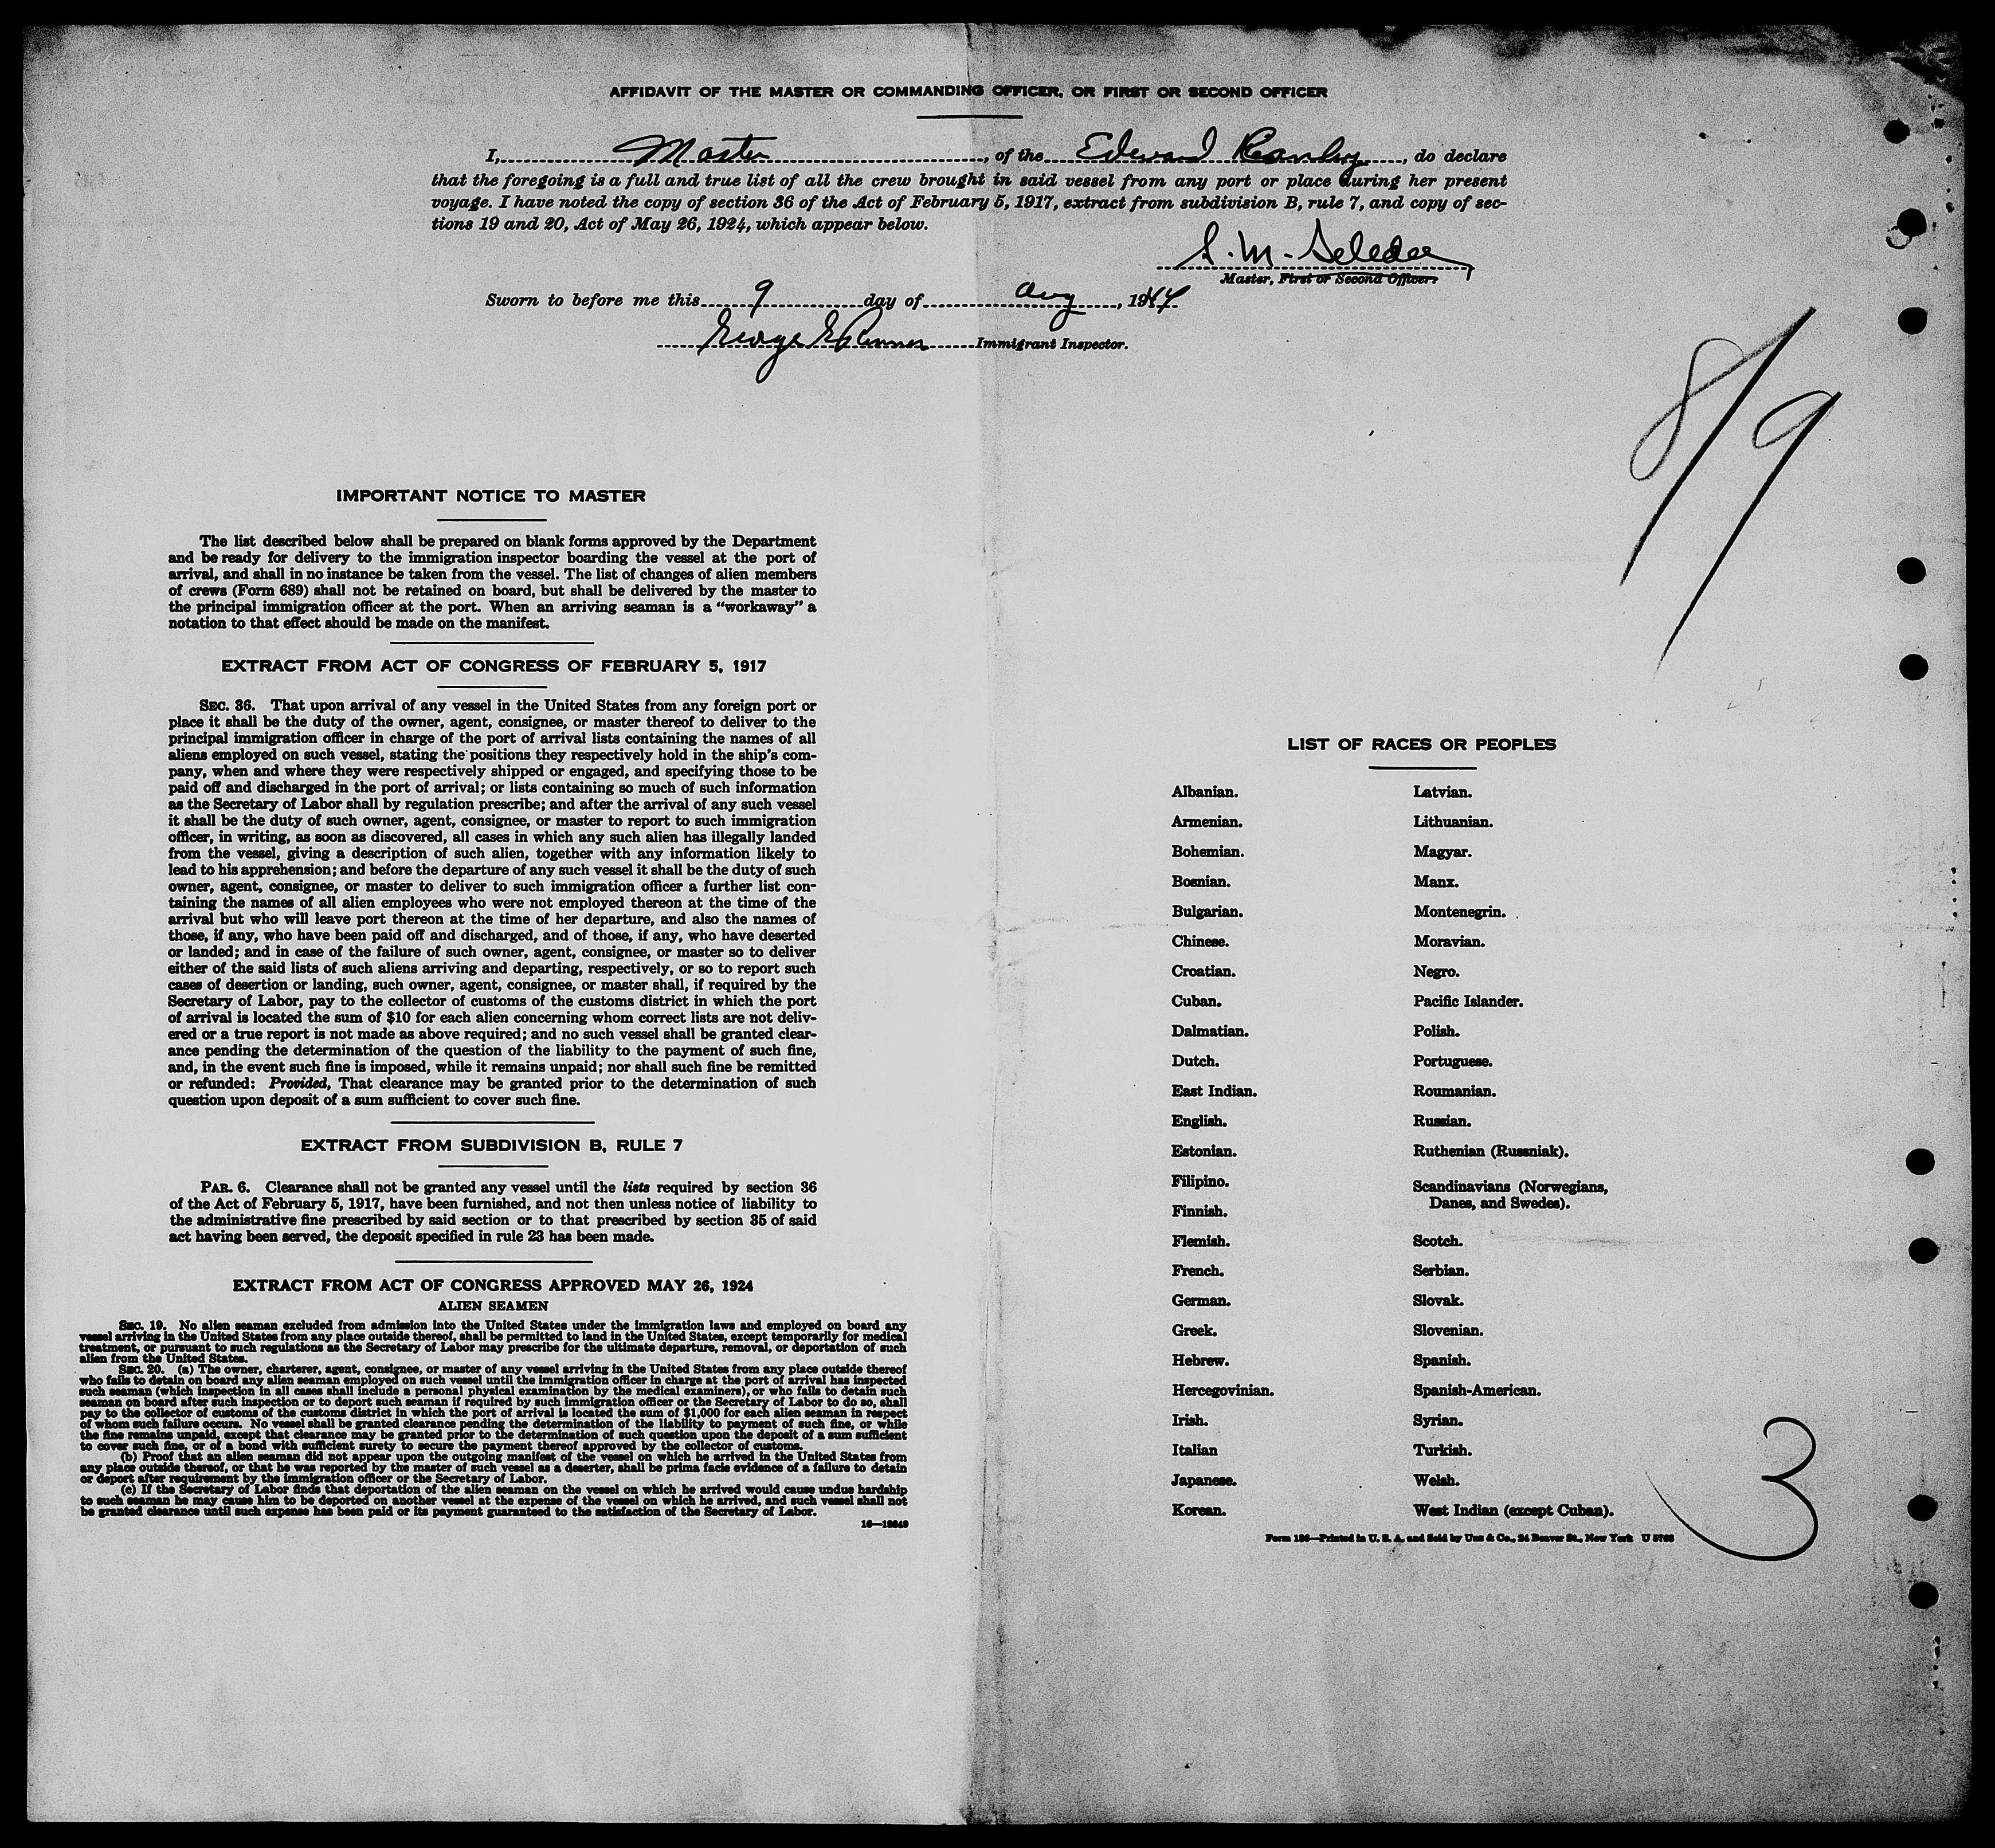 AFFIDAVIT OF THE MASTER OR COMMANDING OFFICER, OR FIRST OR SECOND OFFICER
I, Master, of the Edward, do declare
that the foregoing is a full and true list of all the crew brought in said vessel from any port or place during her present
voyage. I have noted the copy of section 36 of the Act of February 5, 1917, extract from subdivision B, rule 7, and copy of sec-
tions 19 and 20, Act of May 26, 1924, which appear below.
S. M.
Master, First or Second Officer.
Sworn to before me this 9 day of Aug, 1944
George Immigrant Inspector.
8/9
IMPORTANT NOTICE TO MASTER
The list described below shall be prepared on blank forms approved by the Department
and be ready for delivery to the immigration inspector boarding the vessel at the port of
arrival, and shall in no instance be taken from the vessel. The list of changes of alien members
of crews (Form 689) shall not be retained on board, but shall be delivered by the master to
the principal immigration officer at the port. When an arriving seaman is a "workaway" a
notation to that effect should be made on the manifest.
EXTRACT FROM ACT OF CONGRESS OF FEBRUARY 5, 1917
SEC. 36. That upon arrival of any vessel in the United States from any foreign port or
place it shall be the duty of the owner, agent, consignee, or master thereof to deliver to the
principal immigration officer in charge of the port of arrival lists containing the names of all
aliens employed on such vessel, stating the positions they respectively hold in the ship's com-
pany, when and where they were respectively shipped or engaged, and specifying those to be
paid off and discharged in the port of arrival; or lists containing so much of such information
as the Secretary of Labor shall by regulation prescribe; and after the arrival of any such vessel
it shall be the duty of such owner, agent, consignee, or master to report to such immigration
officer, in writing, as soon as discovered, all cases in which any such alien has illegally landed
from the vessel, giving a description of such alien, together with any information likely to
lead to his apprehension; and before the departure of any such vessel it shall be the duty of such
owner, agent, consignee, or master to deliver to such immigration officer a further list con-
taining the names of all alien employees who were not employed thereon at the time of the
arrival but who will leave port thereon at the time of her departure, and also the names of
those, if any, who have been paid off and discharged, and of those, if any, who have deserted
or landed; and in case of the failure of such owner, agent, consignee, or master so to deliver
either of the said lists of such aliens arriving and departing, respectively, or so to report such
cases of desertion or landing, such owner, agent, consignee, or master shall, if required by the
Secretary of Labor, pay to the collector of customs of the customs district in which the port
of arrival is located the sum of $10 for each alien concerning whom correct lists are not deliv-
ered or a true report is not made as above required; and no such vessel shall be granted clear-
ance pending the determination of the question of the liability to the payment of such fine,
and, in the event such fine is imposed, while it remains unpaid; nor shall such fine be remitted
or refunded: Provided, That clearance may be granted prior to the determination of such
question upon deposit of a sum sufficient to cover such fine.
EXTRACT FROM SUBDIVISION B, RULE 7
PAR. 6. Clearance shall not be granted any vessel until the lists required by section 36
of the Act of February 5, 1917, have been furnished, and not then unless notice of liability to
the administrative fine prescribed by said section or to that prescribed by section 35 of said
act having been served, the deposit specified in rule 23 has been made.
EXTRACT FROM ACT OF CONGRESS APPROVED MAY 26, 1924
ALIEN SEAMEN
SEC. 19. No alien seaman excluded from admission into the United States under the immigration laws and employed on board any
vessel arriving in the United States from any place outside thereof, shall be permitted to land in the United States, except temporarily for medical
treatment, or pursuant to such regulations as the Secretary of Labor may prescribe for the ultimate departure, removal, or deportation of such
alien from the United States.
SEC. 20. (a) The owner, charterer, agent, consignee, or master of any vessel arriving in the United States from any place outside thereof
who fails to detain on board any alien seaman employed on such vessel until the immigration officer in charge at the port of arrival has inspected
such seaman (which inspection in all cases shall include a personal physical examination by the medical examiners), or who fails to detain such
seaman on board after such inspection or to deport such seaman if required by such immigration officer or the Secretary of Labor to do so, shall
pay to the collector of customs of the customs district in which the port of arrival is located the sum of $1,000 for each alien seaman in respect
of whom such failure occurs. No vessel shall be granted clearance pending the determination of the liability to payment of such fine, or while
the fine remains unpaid, except that clearance may be granted prior to the determination of such question upon the deposit of a sum sufficient
to cover such fine, or of a bond with sufficient surety to secure the payment thereof approved by the collector of customs.
(b) Proof that an alien seaman did not appear upon the outgoing manifest of the vessel on which he arrived in the United States from
any place outside thereof, or that he was reported by the master of such vessel as a deserter, shall be prima facie evidence of a failure to detain
or deport after requirement by the immigration officer or the Secretary of Labor.
(c) If the Secretary of Labor finds that deportation of the alien seaman on the vessel on which he arrived would cause undue hardship
to such seaman he may cause him to be deported on another vessel at the expense of the vessel on which he arrived, and such vessel shall not
be granted clearance until such expense has been paid or its payment guaranteed to the satisfaction of the Secretary of Labor.
LIST OF RACES OR PEOPLES
Albanian.
Armenian.
Bohemian.
Bosnian.
Bulgarian.
Chinese.
Croatian.
Cuban.
Dalmatian.
Dutch.
East Indian.
English.
Estonian.
Filipino.
Finnish.
Flemish.
French.
German.
Greek.
Hebrew.
Hercegovinian.
Irish.
Italian
Japanese.
Korean.
Latvian.
Lithuanian.
Magyar.
Manx.
Montenegrin.
Moravian.
Negro.
Pacific Islander.
Polish.
Portuguese.
Roumanian.
Russian.
Ruthenian (Russniak).
Scandinavians (Norwegians,
Danes, and Swedes).
Scotch.
Serbian.
Slovak.
Slovenian.
Spanish.
Spanish-American.
Syrian.
Turkish.
Welsh.
West Indian (except Cuban).
Printed in U. S. A. and Sold by Unz & Co., 24 Beaver St., New York
3